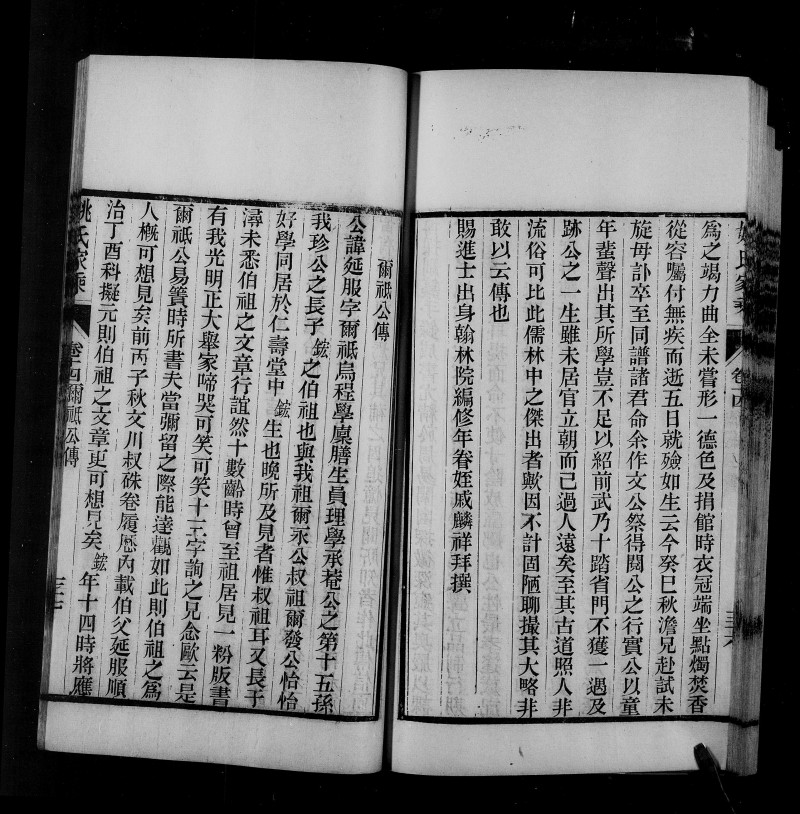 姚氏家乘
卷十四
三十六
為之竭力曲全未嘗形一德色及捐館時衣冠端坐點燭焚香
從容囑付無疾而逝五日就殮如生云今癸巳秋澹兄赴試未
旋母訃卒至同譜諸君命余作文公祭得閱公之行實公以童
年蜚聲出其所學豈不足以紹前武乃十踏省門不獲一遇及
跡公之一生雖未居官立朝而已過人遠矣至其古道照人非
流俗可比此儒林中之傑出者歟因不計固陋聊撮其大略非
敢以云傳也
賜進士出身翰林院編修年眷姪戚麟祥拜撰
爾祇公傳
公諱延服字爾祇烏程學廩膳生員理學承菴公之第十五孫
我珍公之長子鋐之伯祖也與我祖爾承公叔祖爾發公怡怡
好學同居於仁壽堂中鋐生也晚所及見者惟叔祖耳又長于
潯未悉伯祖之文章行誼然十數齡時曾至祖居見一粉版書
有我光明正大舉家啼哭可笑可笑十二字詢之兄念歐云是
爾祇公易簀時所書夫當彌留之際能達觀如此則伯祖之為
人概可想見矣前丙子秋文川叔硃卷履歷內載伯父延服順
治丁酉科擬元則伯祖之文章更可想見矣鋐年十四時將應
姚氏家乘
卷十四爾祇公傳
三十七